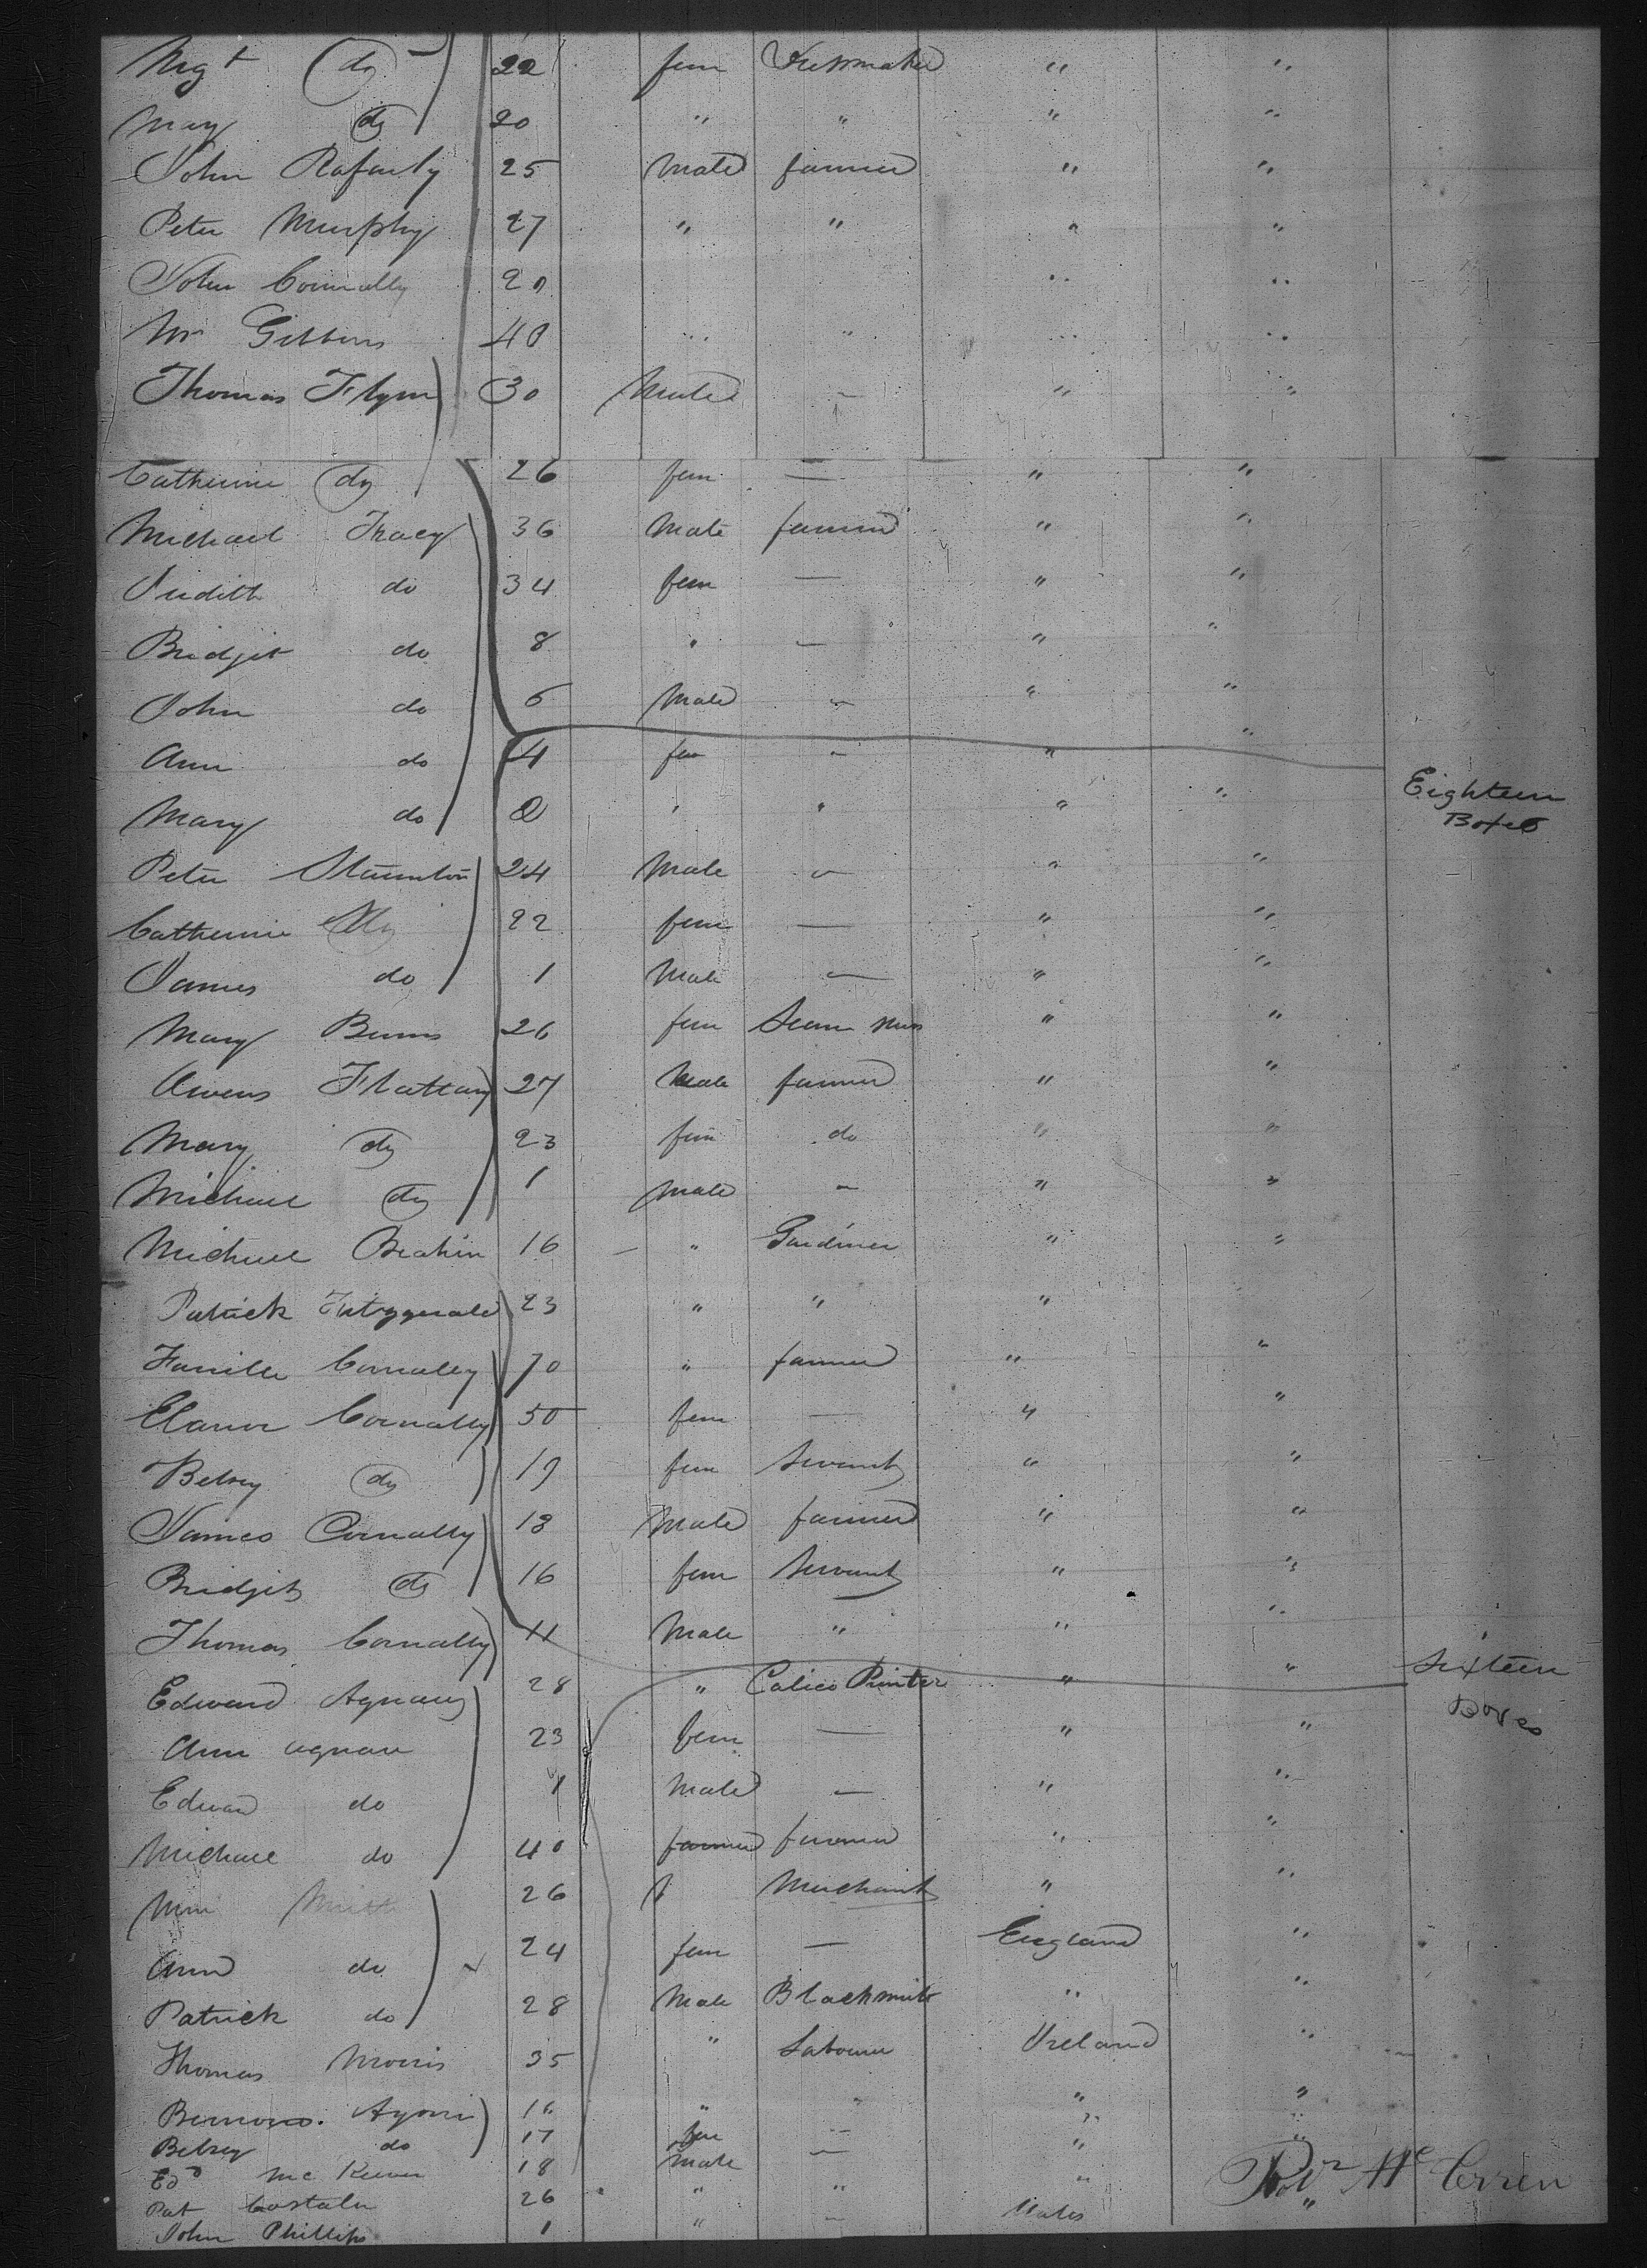 Mgt do 22 fem Dressmaker " "
Mary do 20 " " " "
John Rafarly 25 Male farmer " "
Peter Murphy 27 " " " "
John Connally 20 " "
Wm Gibbins 40 " " " "
Thomas Flynn 30 Male — " "
Catherine do 26 fem — " "
Michael Tracy 36 Male farmer " "
Judith do 34 fem — " "
Bridjet do 8 " — " "
John do 6 Male — " "
Ann do 4 fem — " "
Mary do 2 " " " " Eighteen
Boxes
Peter Staunton 24 Male — " "
Catherine do 22 fem — " "
James do 1 Male — " "
Mary Burns 26 fem Seam " "
Owens Flattary 27 Male farmer " "
Mary do 23 fem do " "
Michael do 1 Male — " "
Michael 16 — " Gardiner " "
Patrick Fitzgerald 23 " " "
Connally 70 " farmer " "
Elanor Connally 50 fem — " "
Betsey do 19 fem Servant " "
James Connally 18 Male farmer " "
Bridjet do 16 fem Servant " "
Thomas Connally 11 Male " " "
Edward 28 " Calico Printer " " Sixteen
Boxes
Ann Agnau 23 fem — " "
Edward do 1 Male — " "
Michael do 40 farmer farmer " "
26 Merchant " "
Ann do 24 fem — England "
Patrick do 28 Male Blacksmith " "
Thomas Morris 35 " Labourer Ireland "
16 " " " "
Betsey do 17 fem — " "
Ed Mc 18 Male — "
Pat 26 " " "
John Phillips 1 " — "